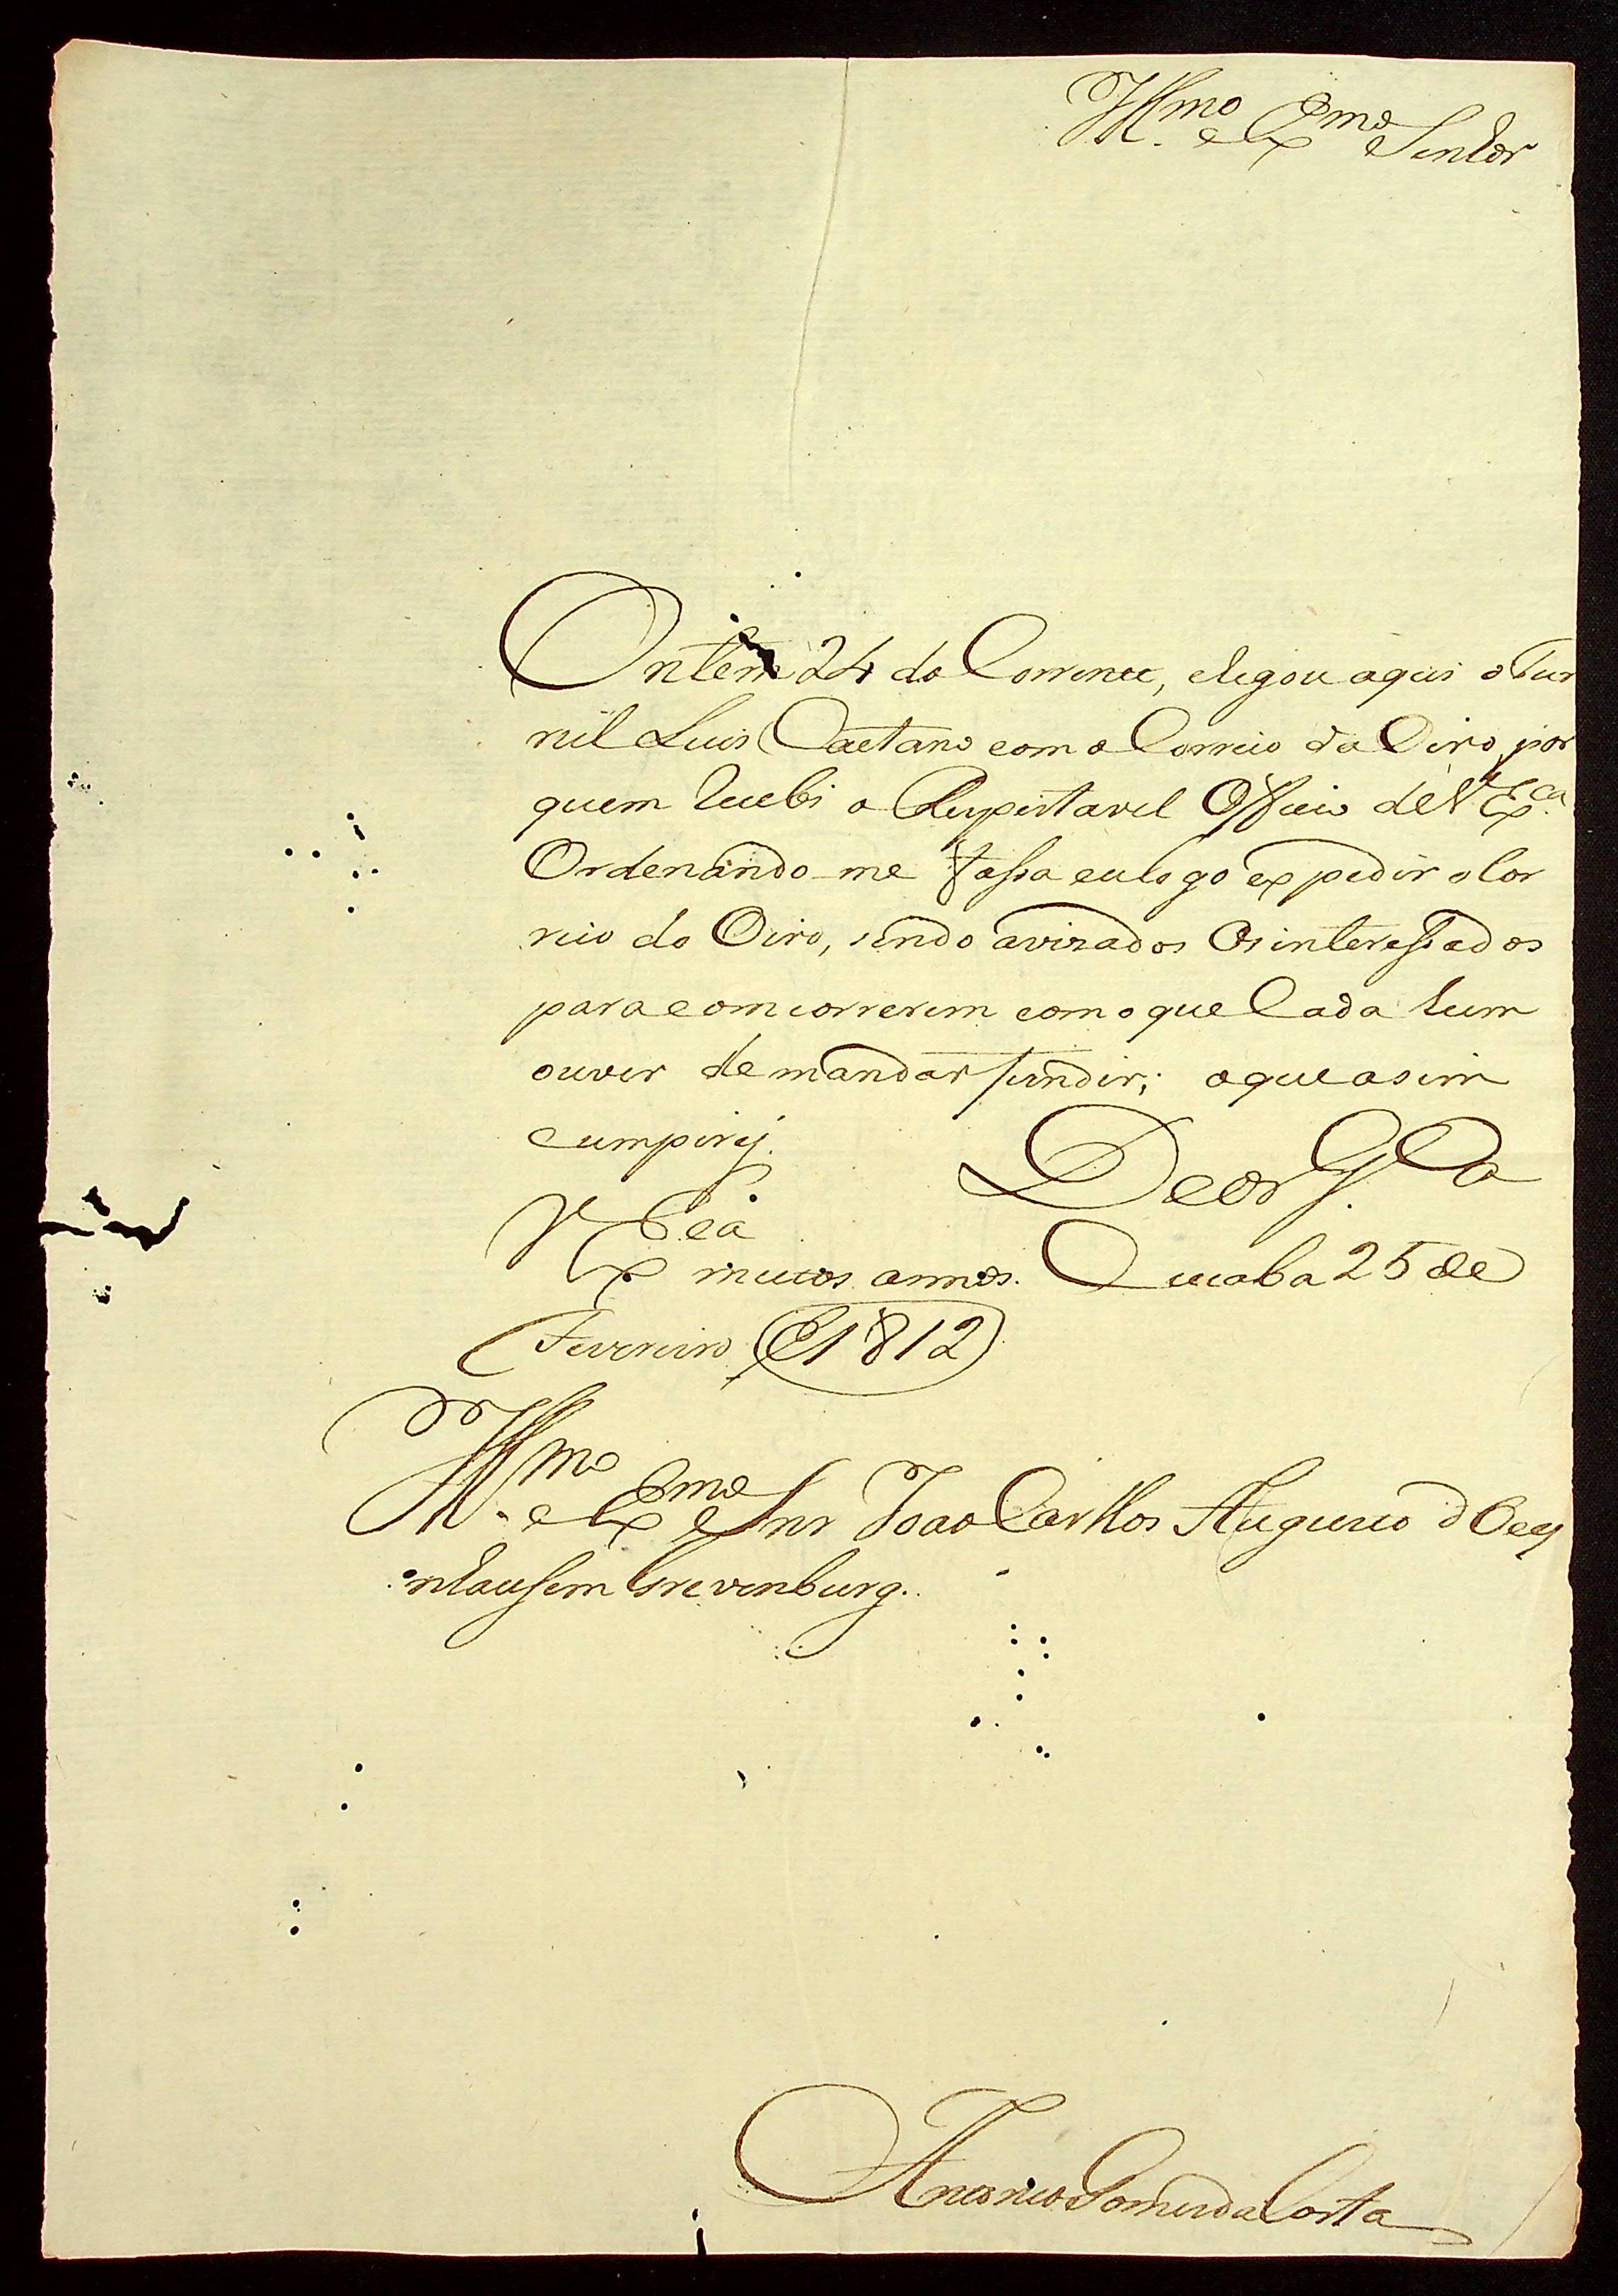 Illmo e Exmo Senhor
Ontem 24 do Corrente, chegou aqui o Fur
riel Luis Caetano com o Correio do Oiro, por
quem recebi o Respeitavel Officio de V. Exca
Ordenando-me fassa eu logo expedir o Cor
reio do Oiro, sendo avizados Os interessados
para comcorrerem com o que Cada hum
ouver de mandar fundir; o que asim
cumpirej.
Deos G.e a
V Excia muitos annos. Cuiaba 25 de
Fevereiro de 1812
Illmo e Exmo Snr Joao Carllos Augusto d'Oey
nhausem Grevenburg.
Antonio Gomes da Costa